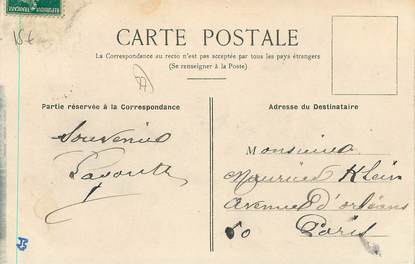 15€
CARTE POSTALE
La Correspondance au recto n'est pas acceptée par tous les pays étrangers
(Se renseigner à la Poste)
Partie réservée à la Correspondance
Adresse du Destinataire
Souvenirs
Monsieur
Maurice Klein
Avenue d'orléans
60 Paris